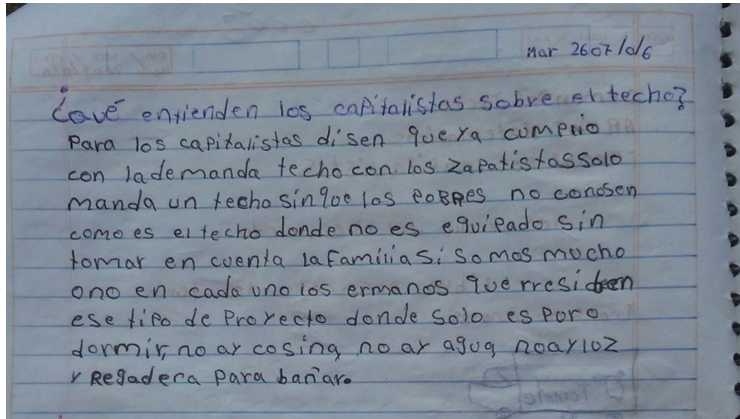 mar 2607/0/6
¿Qué entienden los capitalistas sobre el techo?
Para los capitalistas disen que ya cumplio
con lademanda techo con los zapatistas solo
manda un techo sin que los pobres no conosen
como es el techo donde no es equipado sin
tomar en cuenta la familia si somos mucho
ono en cada uno los ermanos que rresiben
ese tipo de proyecto donde solo es para
dormir, no ay cosina, no ay agua, noay loz
y Regadera para bañar.